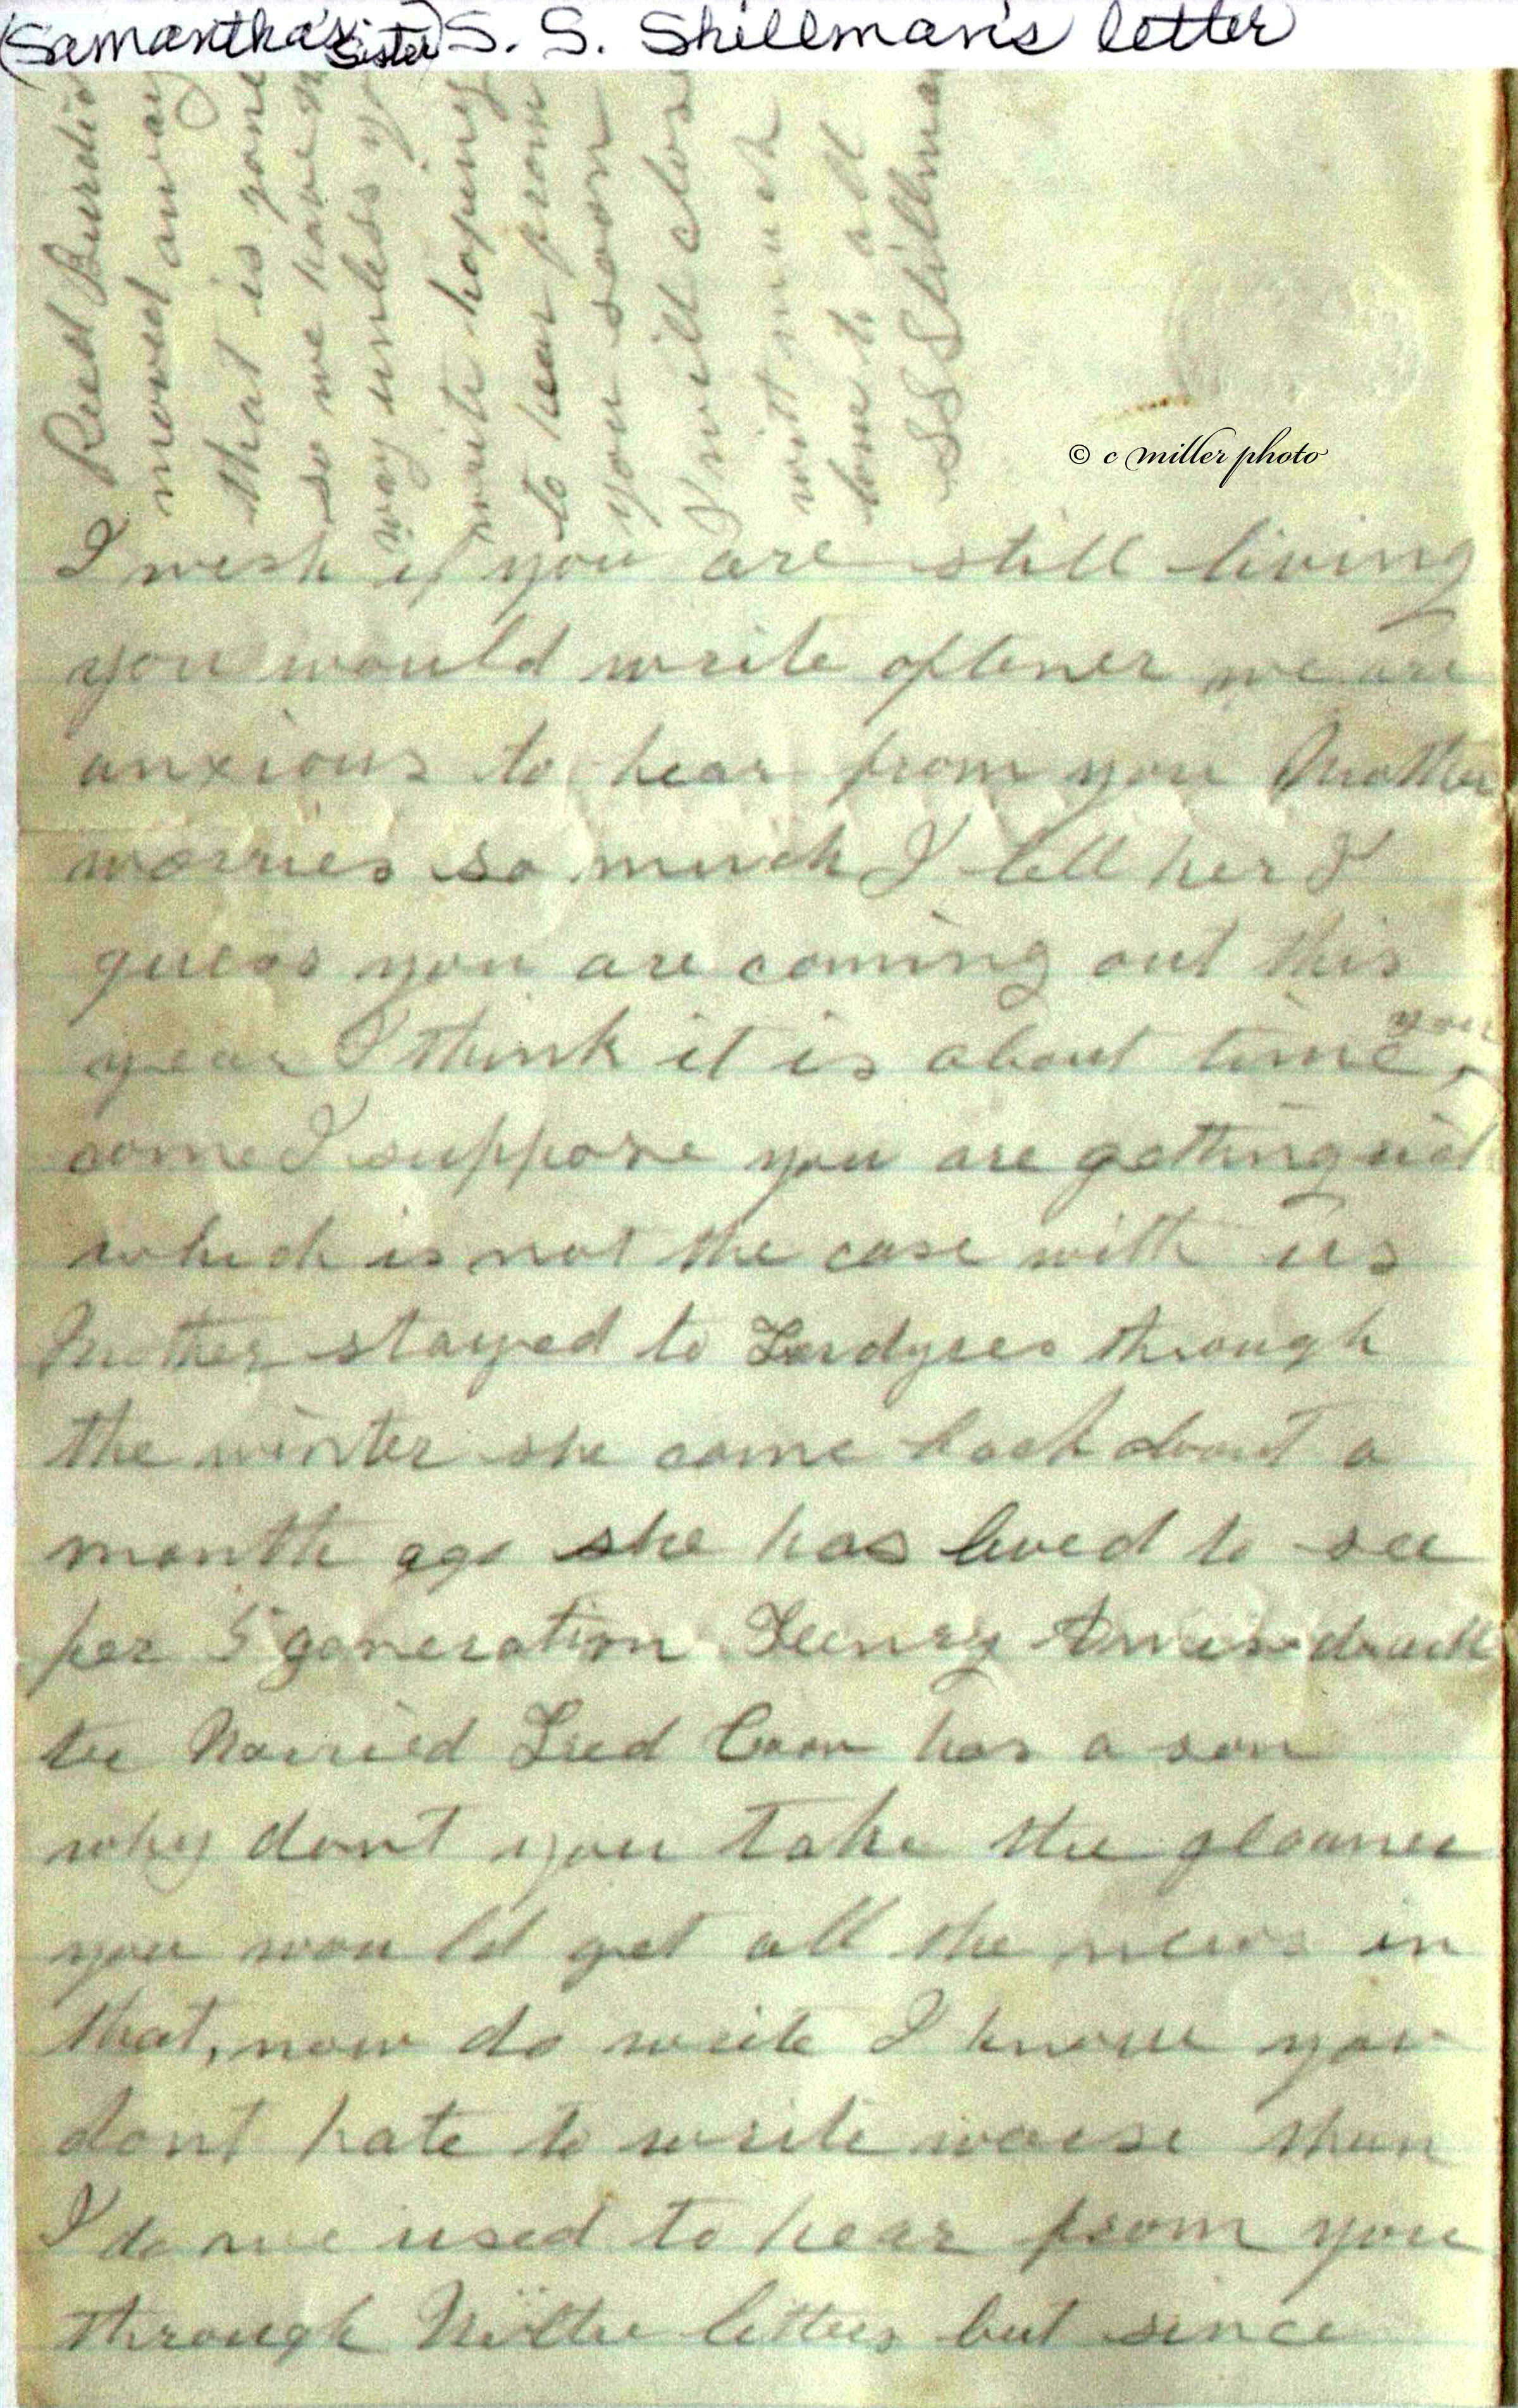 (Samantha's Sister) S. S. Shillman's letter
© c miller photo
I wish if you are still living
you would write oftener we are
anxious to hear from you Mother
worries so much I tell her I
guess you are coming out this
year I think it is about time you
come I suppose you are getting rich
which is not the case with us
Mother stayed to through
the winter she came back about a
month ago she has lived to see
her 5 generation daugh
ter Married Coon has a son
why dont you take the gleaner
you would get all the news in
that, now do write I know you
dont hate to write worse than
I do we used to hear from you
through letters but since
Reed Burdic
moved away
that is gone
so we have n
way unless y
write hopeing
to hear from
you soon
I will close
with much
love to all
S S Shillman